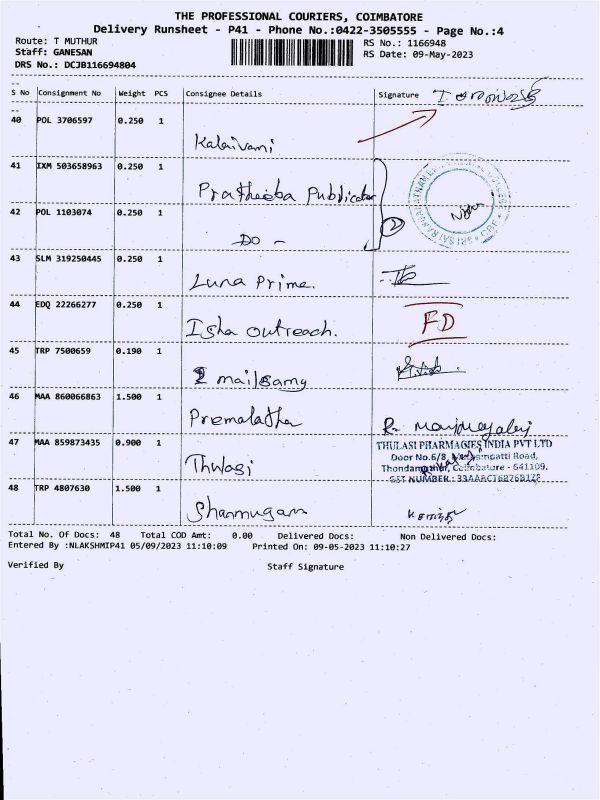 THE PROFESSIONAL COURIERS, COIMBATORE
Delivery Runsheet - P41 - Phone No.:0422-3505555 - Page No.:4
Route: T MUTHUR
Staff: GANESAN
DRS No.: DCJB116694804
RS No.: 1166948
RS Date: 09-May-2023
S No Consignment No Weight PCS Consignee Details Signature
40 POL 3706597 0.250 1 Kalaivani
41 IXM 503658963 0.250 1 Pratheeba Publication
42 POL 1103074 0.250 1 DO - 2
43 SLM 319250445 0.250 1 Luna Prime.
44 EDQ 22266277 0.250 1 Isha outreach. FD
45 TRP 7500659 0.190 1 mailsamy
46 MAA 860066863 1.500 1 Premalatha
47 MAA 859873435 0.900 1 Thulasi
THULASI PHARMACIES INDIA PVT LTD
Door No.6/8, Road,
Coimbatore - 641109.
GST NUMBER :
48 TRP 4807630 1.500 1 Shanmugam
Total No. Of Docs: 48 Total COD Amt: 0.00 Delivered Docs: Non Delivered Docs:
Entered By :NLAKSHMIP41 05/09/2023 11:10:09 Printed On: 09-05-2023 11:10:27
Verified By Staff Signature